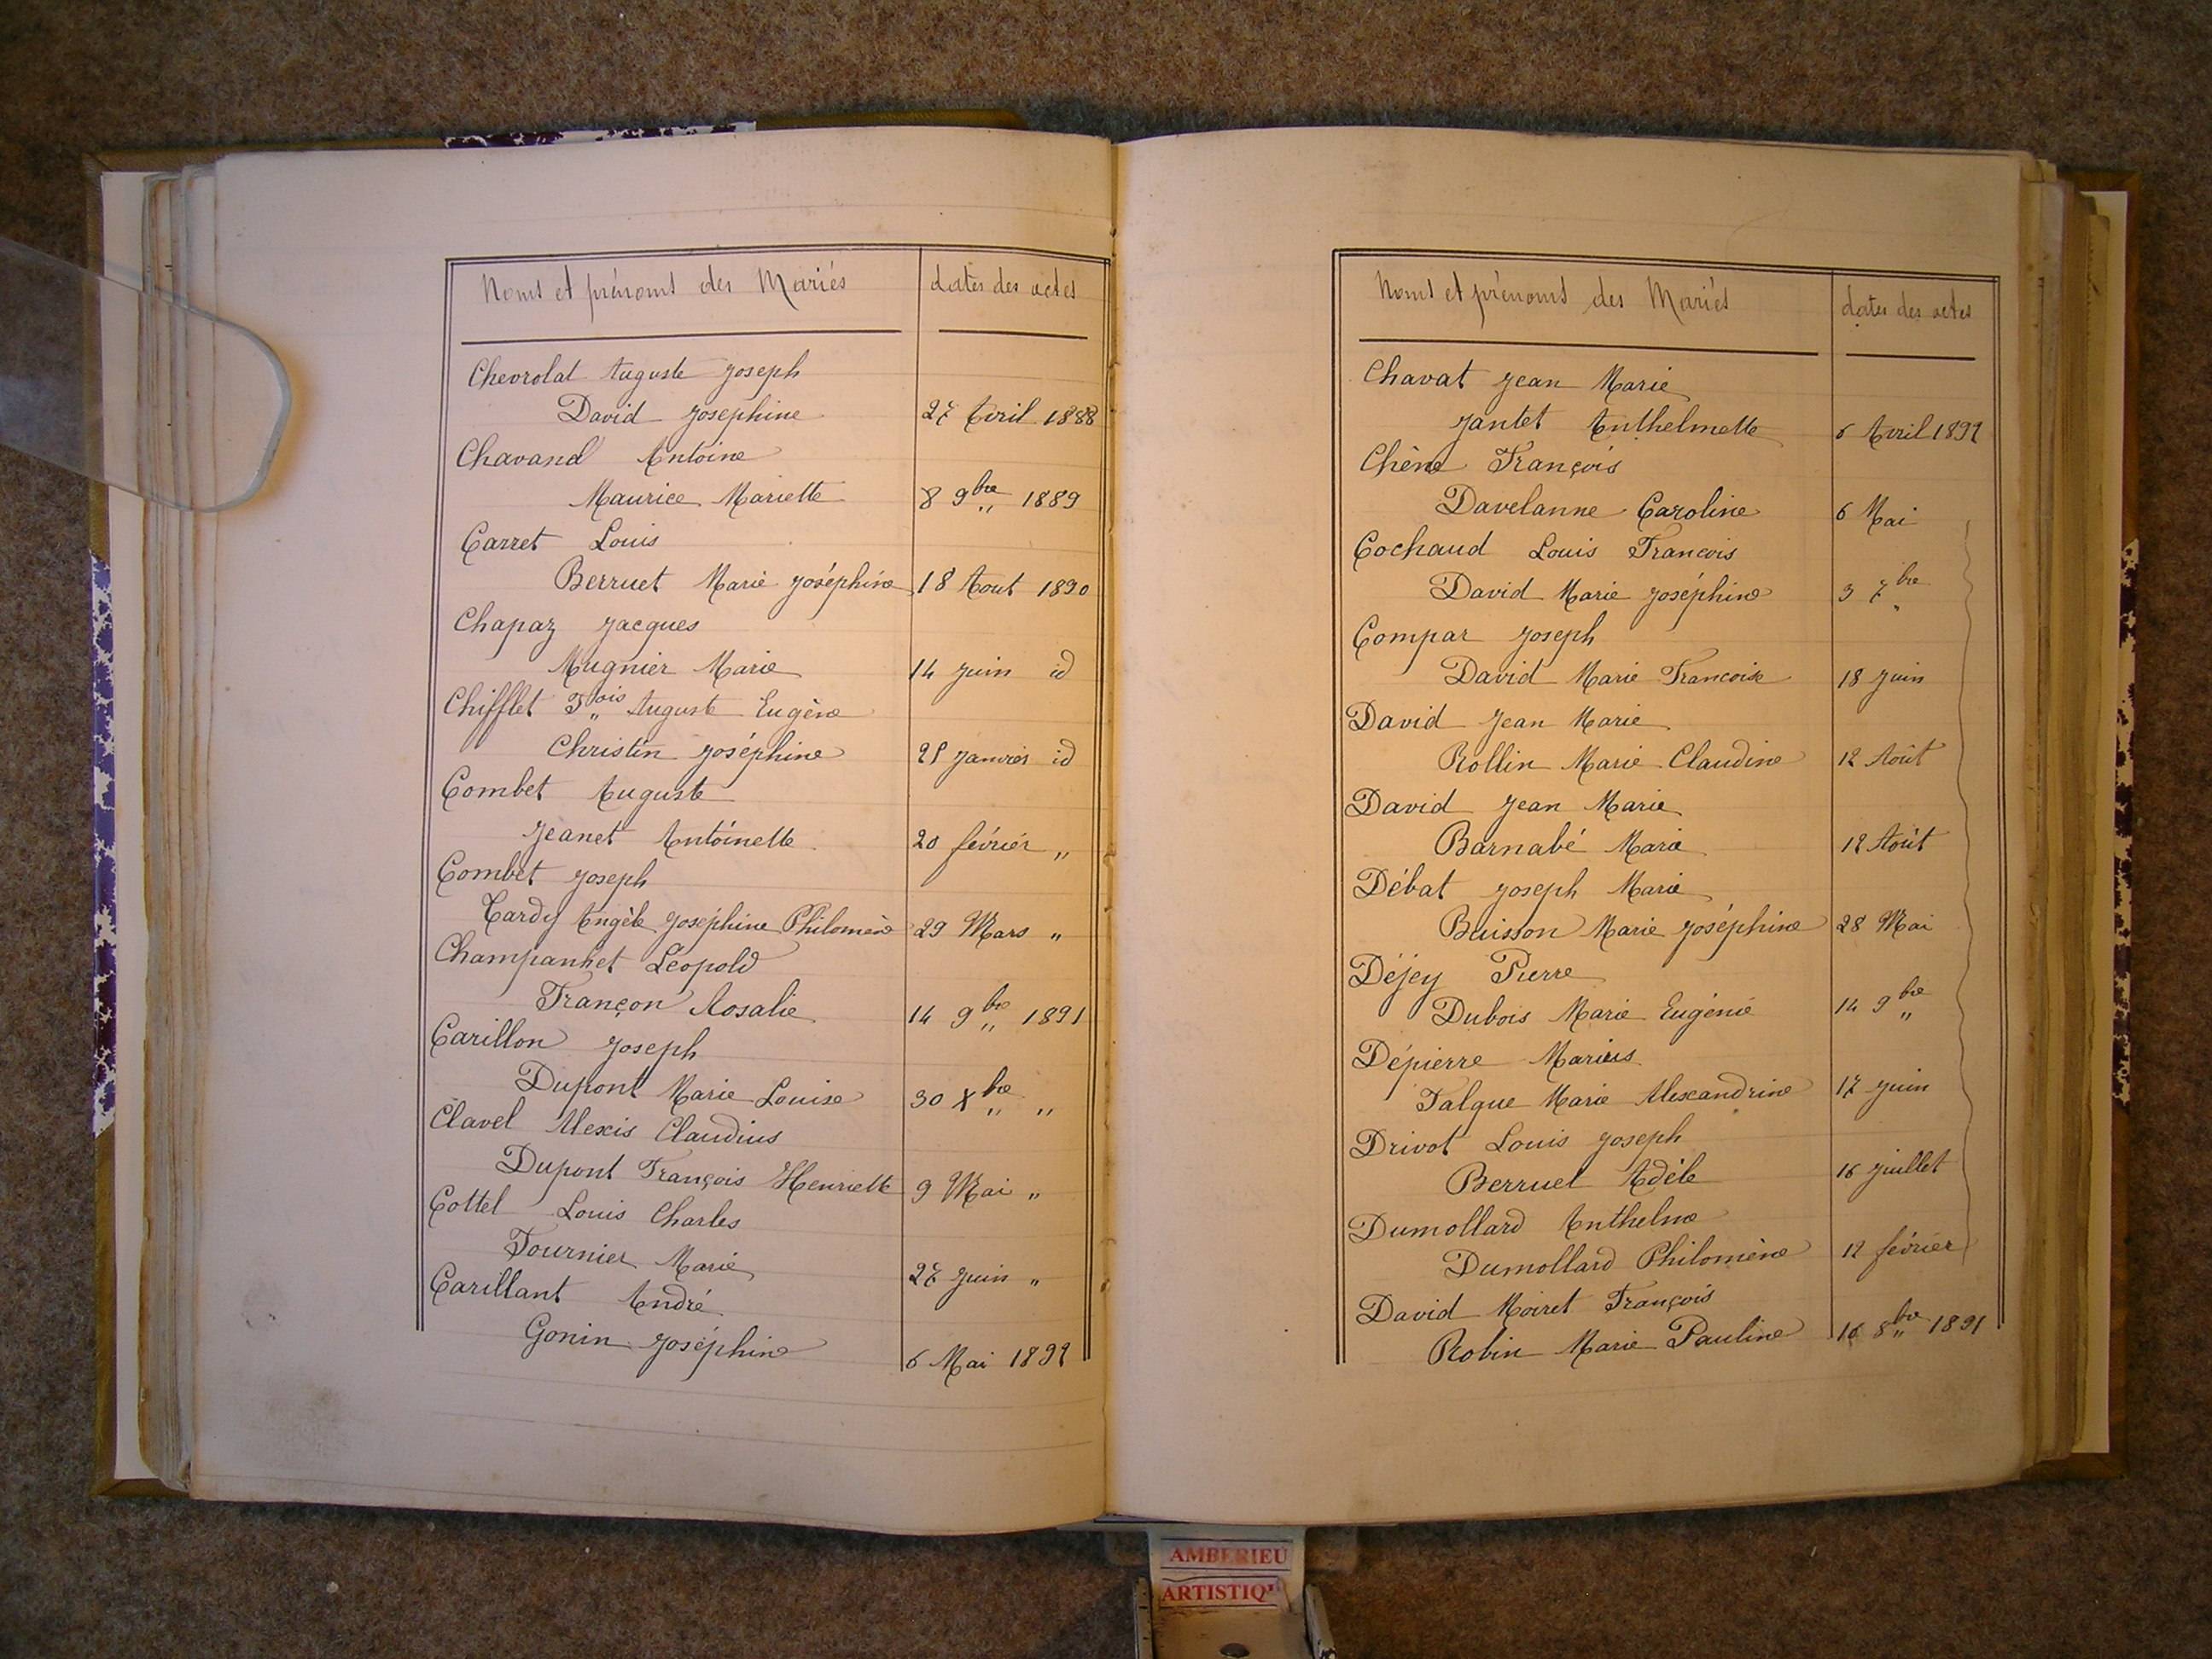 Noms et prénoms des Mariés dates des actes
Chevrolat Auguste Joseph
David Josephine 27 Avril 1888
Chavand Antoine
Maurice Mariette 8 9bre 1889
Carret Louis
Berruet Marie Joséphine 18 Aout 1890
Chapaz Jacques
Mugnier Marie 14 Juin id
Chifflet Fois Auguste Eugène
Christin Joséphine 25 Janvier id
Combet Auguste
Jeanet Antoinette 20 février "
Combet Joseph
Tardy Angèle Joséphine Philomène 29 Mars "
Champanhet Léopold
Françon Rosalie 14 9bre 1891
Carillon Joseph
Dupont Marie Louise 30 Xbre "
Clavel Alexis Claudius
Dupont François Henriette 9 Mai "
Cottel Louis Charles
Fournier Marie 27 Juin "
Carillant André
Gonin Joséphine 6 Mai 1892
Noms et prénoms des Mariés dates des actes
Chavat Jean Marie
Jantet Anthelmette 6 Avril 1892
Chêne François
Davelanne Caroline 6 Mai
Cochaud Louis François
David Marie Joséphine 3 7bre
Compar Joseph
David Marie Francoise 18 Juin
David Jean Marie
Rollin Marie Claudine 12 Août
David Jean Marie
Barnabé Marie 12 Août
Débat Joseph Marie
Buisson Marie Joséphine 28 Mai
Déjey Pierre
Dubois Marie Eugénie 14 9bre
Dépierre Marius
Falque Marie Alexandrine 17 Juin
Drivot Louis Joseph
Berruet Adèle 16 Juillet
Dumollard Anthelme
Dumollard Philomène 12 février
David Moiret François
Robin Marie Pauline 16 8bre 1891
AMBERIEU
ARTISTIQ